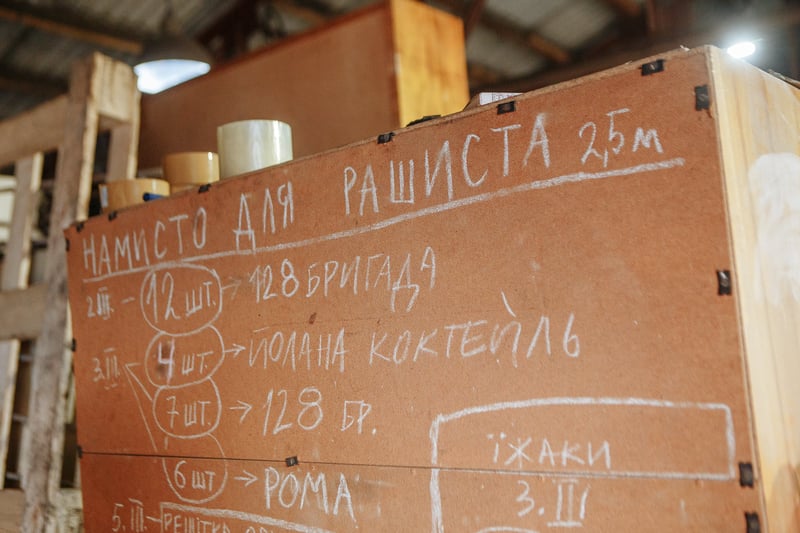 НАМИСТО ДЛЯ РАШИСТА 2,5м
2.III. – 12 шт. → 128 БРИГАДА
3.III. 4 шт. → ЙОЛАНА КОКТЕЙЛЬ
7 шт. → 128 БР.
6 шт → РОМА
їЖАКИ
3.III
5.III – РЕШІТКА